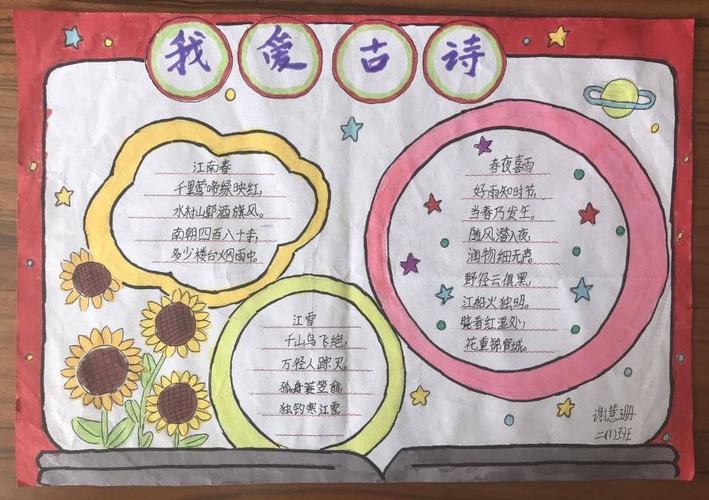 我爱古诗
江南春
千里莺啼绿映红,
水村山郭酒旗风。
南朝四百八十寺,
多少楼台烟雨中。
江雪
千山鸟飞绝,
万径人踪灭。
孤舟蓑笠翁,
独钓寒江雪
春夜喜雨
好雨知时节,
当春乃发生。
随风潜入夜,
润物细无声。
野径云俱黑,
江船火独明。
晓看红湿处,
花重锦官城。
谢慧珊
二(1)班